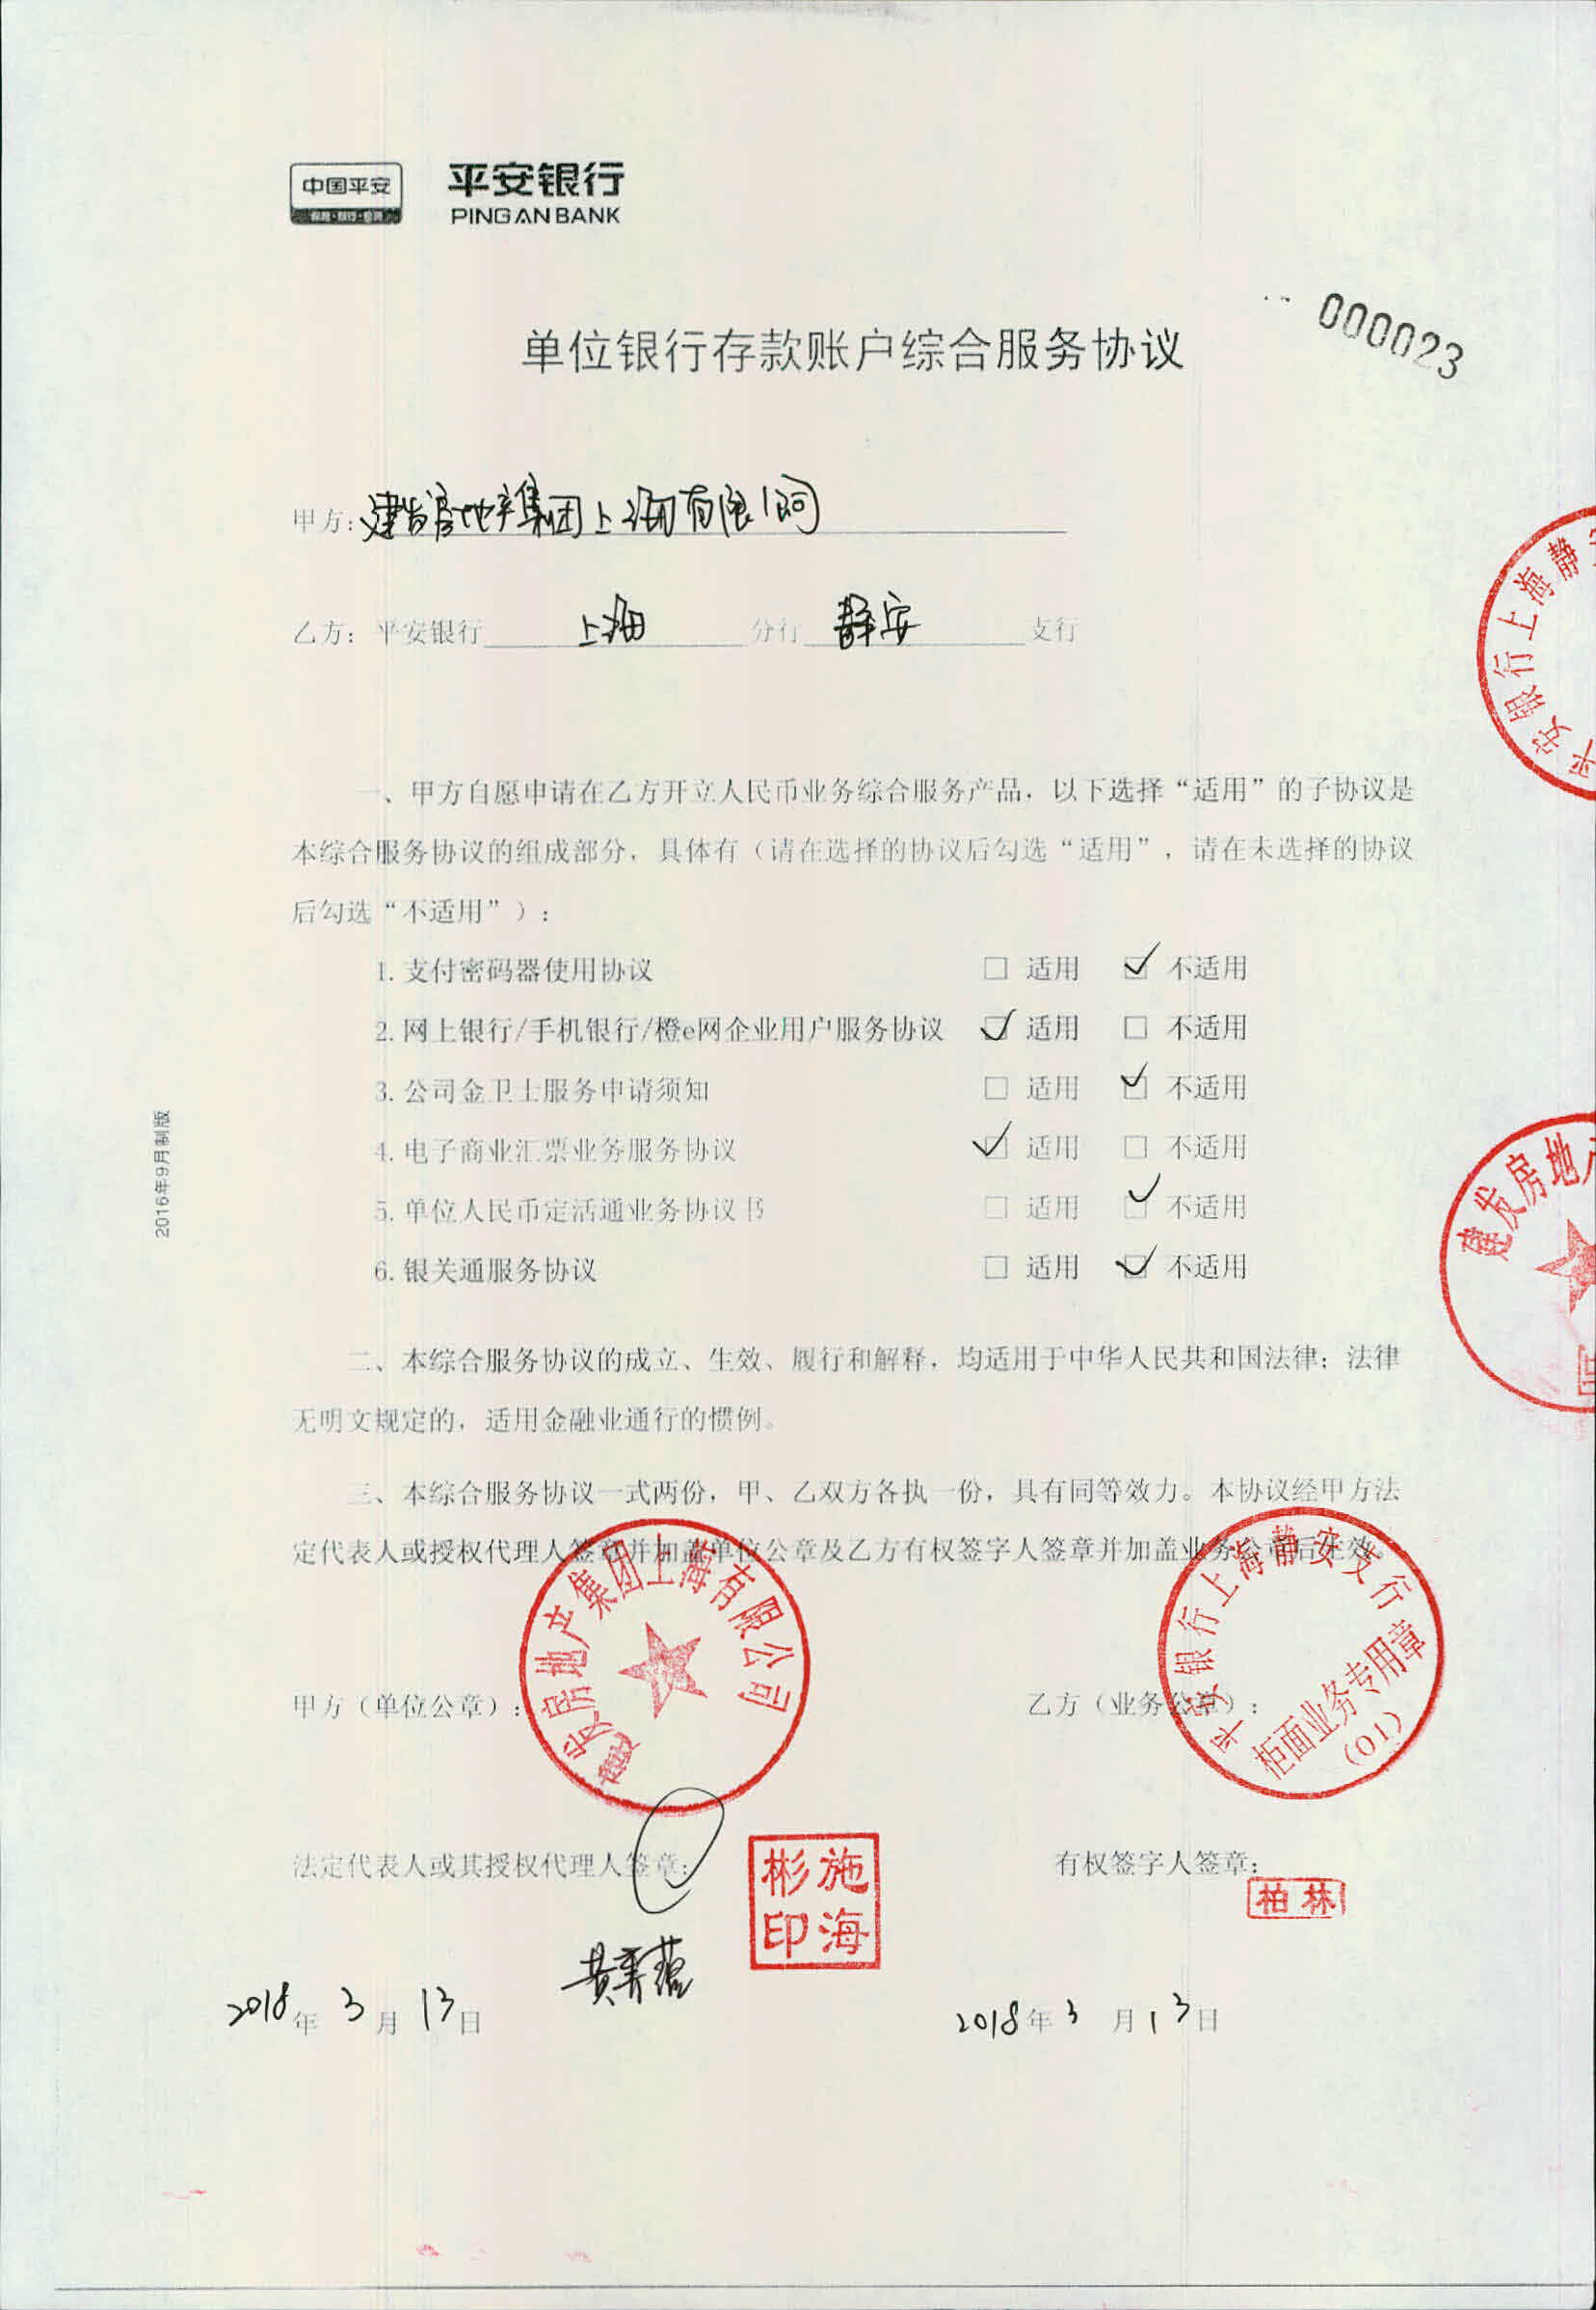 中国平安
保险·银行·投资
平安银行
PING AN BANK
000023
单位银行存款账户综合服务协议
甲方：建发房地产集团上海有限公司
乙方：平安银行 上海 分行 静安 支行
平安银行上海静安
一、甲方自愿申请在乙方开立人民币业务综合服务产品，以下选择“适用”的子协议是
本综合服务协议的组成部分，具体有（请在选择的协议后勾选“适用”，请在未选择的协议
后勾选“不适用”）：
1. 支付密码器使用协议 □ 适用 ☑ 不适用
2. 网上银行/手机银行/橙e网企业用户服务协议 ☑ 适用 □ 不适用
3. 公司金卫士服务申请须知 □ 适用 ☑ 不适用
4. 电子商业汇票业务服务协议 ☑ 适用 □ 不适用
5. 单位人民币定活通业务协议书 □ 适用 ☑ 不适用
6. 银关通服务协议 □ 适用 ☑ 不适用
2016年9月制版
建发房地产
司
二、本综合服务协议的成立、生效、履行和解释，均适用于中华人民共和国法律；法律
无明文规定的，适用金融业通行的惯例。
三、本综合服务协议一式两份，甲、乙双方各执一份，具有同等效力。本协议经甲方法
定代表人或授权代理人签章并加盖单位公章及乙方有权签字人签章并加盖业务公章后生效。
建发房地产集团上海有限公司
平安银行上海静安支行
柜面业务专用章
(01)
甲方（单位公章）： 乙方（业务公章）：
法定代表人或其授权代理人签章： 有权签字人签章：
施海彬印
柏林
2018年3月13日 2018年3月13日